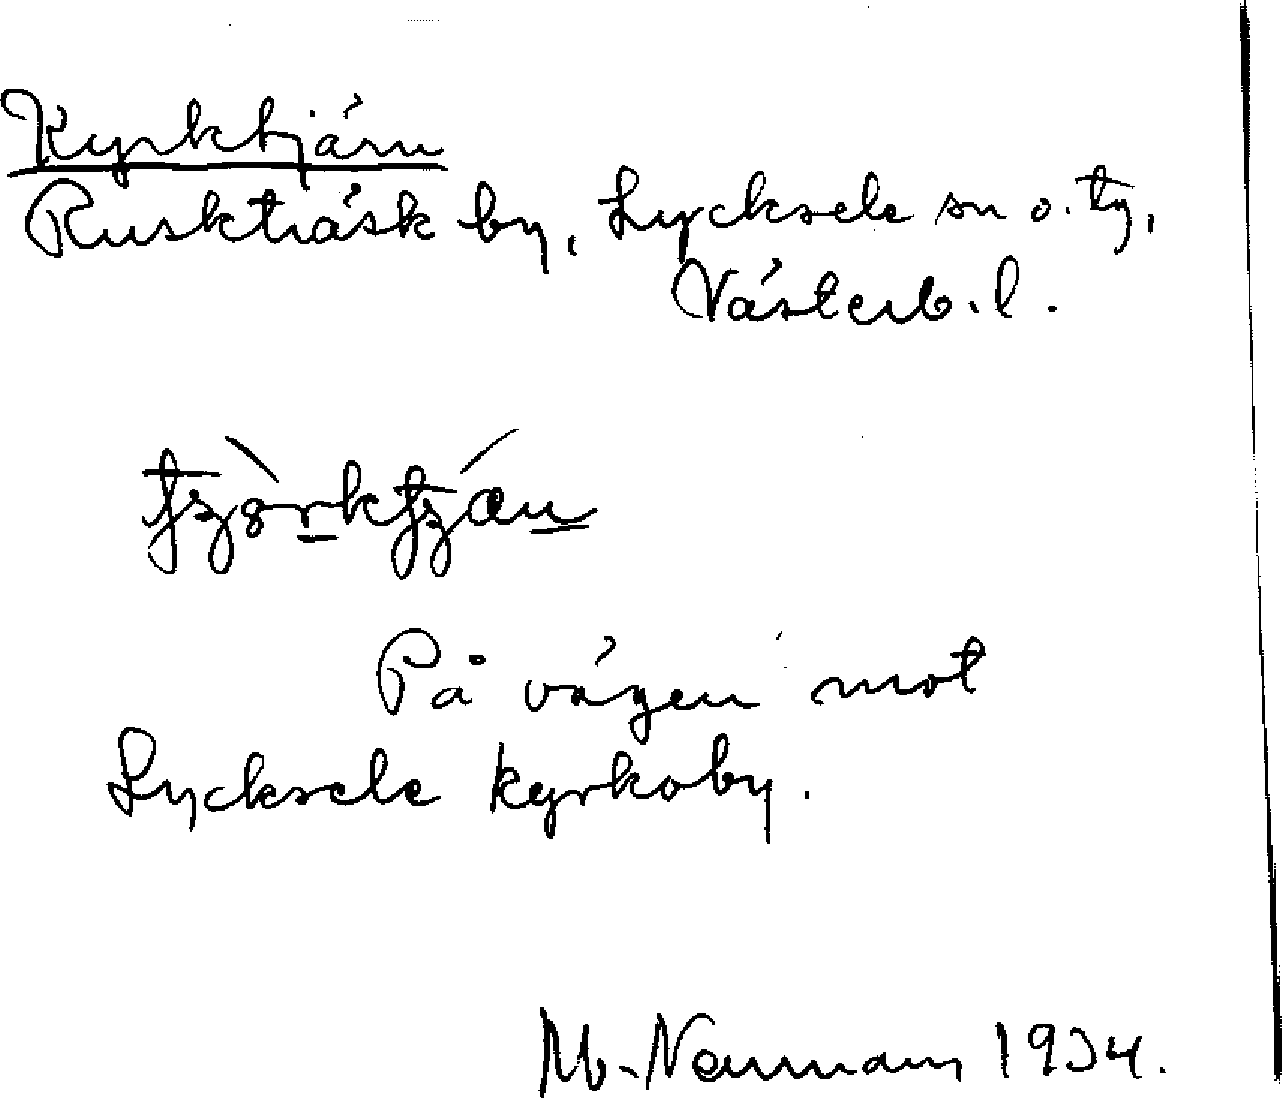 Kyrktjärn
Ruskträsk by, Lycksele sn o. tg,
Västerb. l.
På vägen mot
Lycksele kyrkoby.
1934.